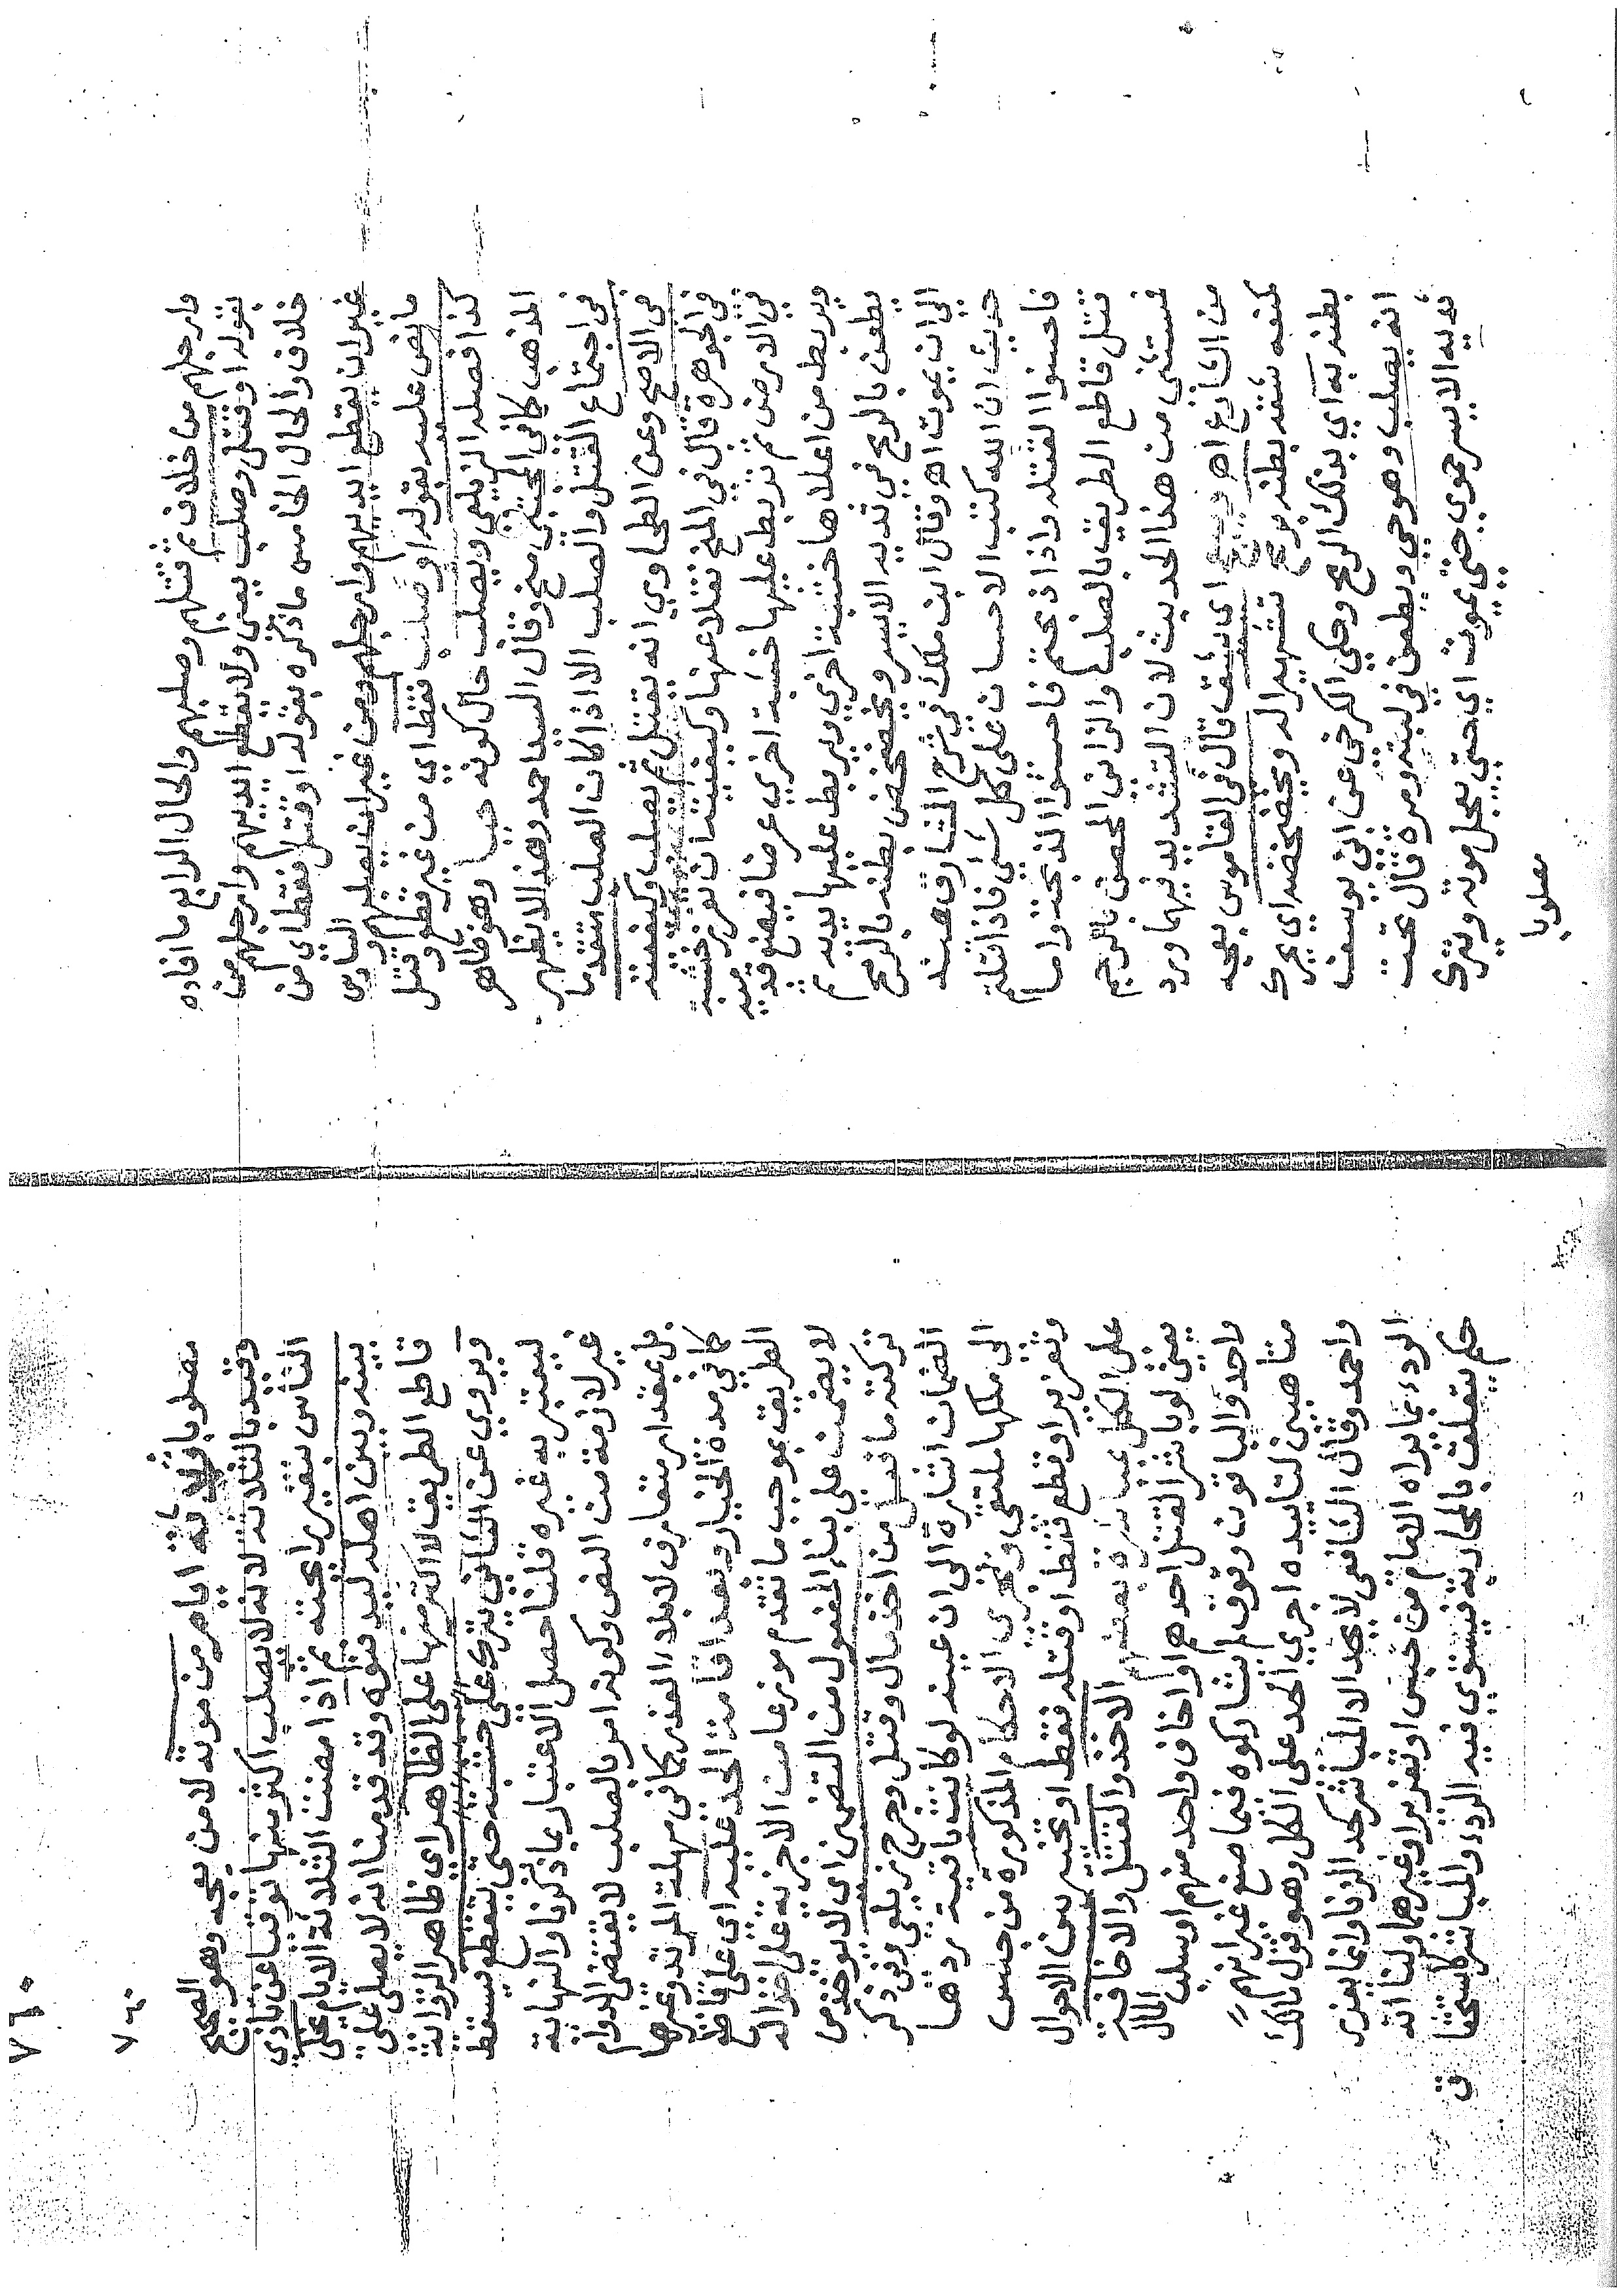 وارجلهم من خلاف ثم قتلهم وصلبهم والحال الرابع ما افاده
بقوله او قتل وصلب يعني ولا يقطع ايديهم وارجلهم من
خلاف والحال الخامس ما ذكره بقوله او قتل فقط اي من
غير ان يقطع ايديهم وارجلهم ومن غير ان يصلبهم و السادس
ما نص عليه بقوله او صلب فقط اي من غير قطع وقتل
كذا فصله الزيلعي ويصلب حال كونه حيا وهو ظاهر
المذهب كما في المجتبى منح وقال السيد احمد وهذا لا يظهر
في اجتماع القتل والصلب الا اذا كان الصلب متقدما
في الاصح وعن الطحاوي انه يقتل ثم يصلب وكيفيته
في الجوهرة قال في المنح نقلا عنها وكيفيته ان تغرز خشبة
في الارض ثم تربط عليها خشبة اخرى عرضا فيضع قدميه
ويربط من اعلاها خشبة اخرى ويربط عليها يديه ثم
يطعن بالرمح في ثديه الايسر ويخضخض بطنه بالرمح
الى ان يموت اهـ وقال ابن ملك في شرح المشارق عند
حديث ان الله كتب الاحسان على كل شيء فاذا قتلتم
فاحسنوا القتلة واذا ذبحتم فاحسنوا الذبحة واما
قتل قاطع الطريق بالصلب والزاني المحصن بالرجم
فمستثنى من هذا الحديث لان التشديد فيهما ورد
من الشارع اهـ ويبعج اي يشق قال في القاموس بعجه
كمنعه شقه بطنه برمح تشهيرا له ويخضخضه اي يحرك
بطنه به اي بذلك الرمح وحكى الكرخي عن ابي يوسف
انه يصلب وهو حي ويطعن في لبته ومرة قال تحت
ثديه الايسر حموي حتى يموت اي حتى يعجل موته ويترك
مصلوبا
٧٦٠
٧٦٠
مصلوبا ثلاثة ايام من موته لا من بعجه وهو الصحيح
وقيد بالثلاثة لانه لا يصلب اكثر منها توقيا عن تاذي
الناس نقيرا بحته ثم اذا مضت الثلاثة الايام يخلى
بينه وبين اهله ليدفنوه وقد قدمنا انه لا يصلى على
قاطع الطريق لا اكثر منها على الظاهر اي ظاهر الرواية
ويروى عن الثاني يترك على خشبة حتى يتقطع فيسقط
ليعتبر به غيره قلنا حصل الاعتبار بما ذكرنا والنهاية
غير لازمة من النص وكونه امر بالصلب لا يقتضي الدوام
بل بمقدار متعارف لابلاء العذر كما في مهلة المرتد وغيرها
كما في مدة الخيار وبعد اقامة الحد عليه اي على قاطع
الطريق بموجب ما تقدم موزعا من الاجزية على احواله
لا يضمن على بناء المفعول من التضمين اي لا يؤخذ من
تركته ما فعل من اخذ مال وقتل وجرح زيلعي وفي ذكر
الضمان اشارة الى ان عينه لو كانت باقية تردها
الى ملكها ملتقى وتجرى الاحكام المذكورة من حبس
وتعزير او قطع فقط او قتله فقط او تخيير بين الاحوال
على الكل بمباشرة بعضهم الاخذ والقتل والاخافة
يعني لو باشر القتل احدهم او اخاف واحد منهم او سلب المال
واحد والباقون وقوف لم يشاركوه فيما صنع غير انهم
متاهبين لتاييده اجري الحد على الكل وهو قول مالك
واحمد وقال الشافعي لا يحد الا المباشر كحد الزنا وانما يعزر
الردء بما يراه الامام من حبس او تعزير او غيرهما ولنا انه
حكم يتعلق بالمحاربة فيستوي فيه الردء والمباشر كاستحقاق